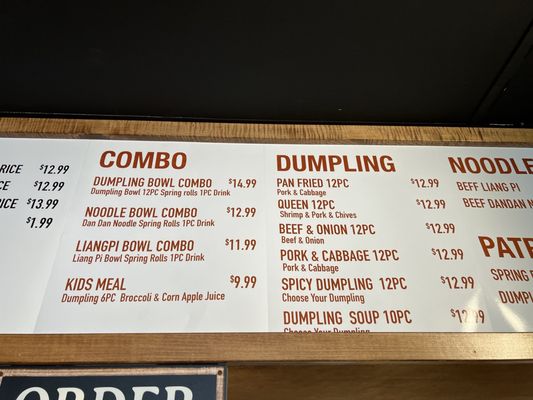 RICE $12.99
CE $12.99
RICE $13.99
$1.99
COMBO
DUMPLING BOWL COMBO $14.99
Dumpling Bowl 12PC Spring rolls 1PC Drink
NOODLE BOWL COMBO $12.99
Dan Dan Noodle Spring Rolls 1PC Drink
LIANGPI BOWL COMBO $11.99
Liang Pi Bowl Spring Rolls 1PC Drink
KIDS MEAL $9.99
Dumpling 6PC Broccoli & Corn Apple Juice
DUMPLING
PAN FRIED 12PC $12.99
Pork & Cabbage
QUEEN 12PC $12.99
Shrimp & Pork & Chives
BEEF & ONION 12PC $12.99
Beef & Onion
PORK & CABBAGE 12PC $12.99
Pork & Cabbage
SPICY DUMPLING 12PC $12.99
Choose Your Dumpling
DUMPLING SOUP 10PC $12.99
Choose Your Dumpling
NOODLE
BEEF LIANG PI
BEEF DANDAN N
PATE
SPRING
DUMPL
ORDER